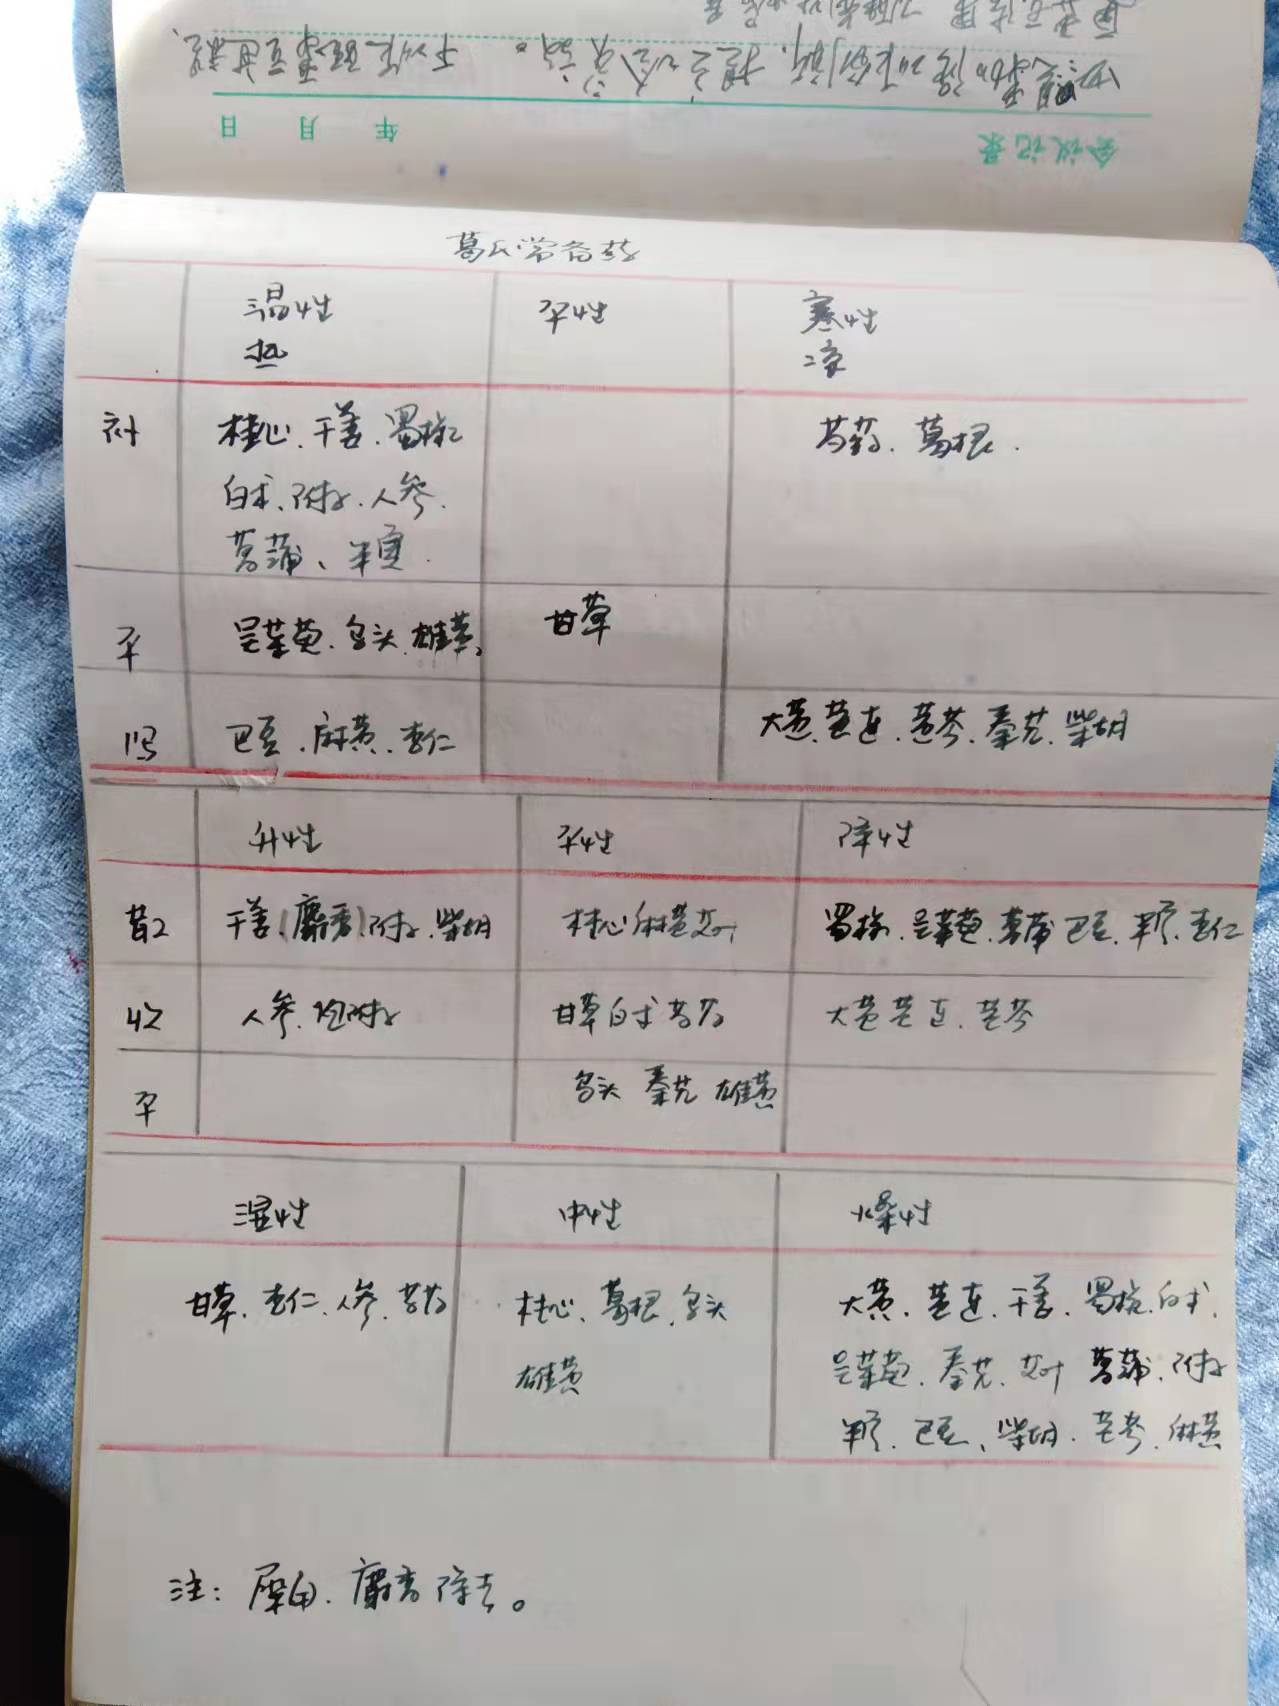 会议记录
年 月 日
葛氏常备药
温性 平性 寒性
热 凉
补 桂心、干姜、蜀椒 芍药、葛根.
白术、附子、人参.
菖蒲、半夏.
平 吴茱萸、乌头、雄黄、 甘草
泻 巴豆、麻黄、杏仁 大黄、黄连、黄芩、秦艽、柴胡
升性 平性 降性
散 干姜(麝香)附子、柴胡 桂心 麻黄 艾叶 蜀椒、吴茱萸、菖蒲 巴豆、半夏、杏仁
收 人参、炮附子 甘草 白术 芍药 大黄 黄连、黄芩
平 乌头 秦艽 雄黄
湿性 中性 燥性
甘草、杏仁、人参、芍药 桂心、葛根、乌头 大黄、黄连、干姜、蜀椒、白术、
雄黄 吴茱萸、秦艽、艾叶 菖蒲、附子
半夏、巴豆、柴胡、黄芩、麻黄
注: 犀角、麝香除去。